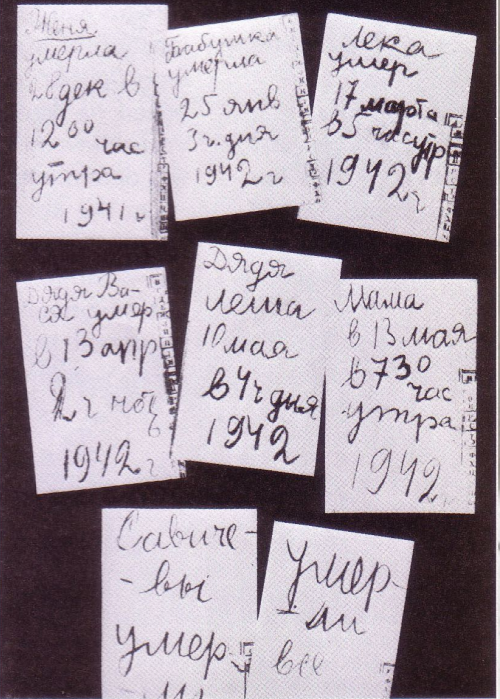 Женя
умерла
28 дек в
12 00 час
утра
1941 г
Бабушка
умерла
25 янв
3 ч. дня
1942 г
Лека
умер
17 марта
в 5 час утр
1942 г
Дядя Ва-
ся умер
в 13 апр
2 ч ноч
1942 г
Дядя
Леша
10 мая
в 4 ч дня
1942
Мама
в 13 мая
в 730
час
утра
1942
Савиче-
-вы
умер-
-ли
Умер-
-ли
все